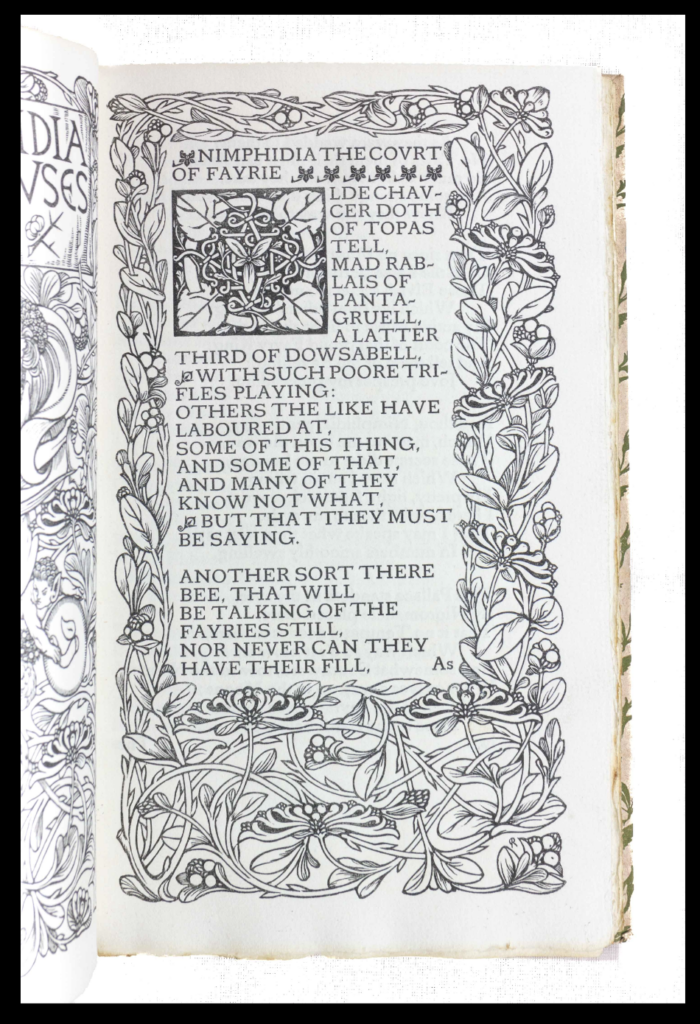 DIA
VSES
NIMPHIDIA THE COVRT
OF FAYRIE
OLDE CHAV-
CER DOTH
OF TOPAS
TELL,
MAD RAB-
LAIS OF
PANTA-
GRUELL,
A LATTER
THIRD OF DOWSABELL,
WITH SUCH POORE TRI-
FLES PLAYING:
OTHERS THE LIKE HAVE
LABOURED AT,
SOME OF THIS THING,
AND SOME OF THAT,
AND MANY OF THEY
KNOW NOT WHAT,
BUT THAT THEY MUST
BE SAYING.
ANOTHER SORT THERE
BEE, THAT WILL
BE TALKING OF THE
FAYRIES STILL,
NOR NEVER CAN THEY
HAVE THEIR FILL, As